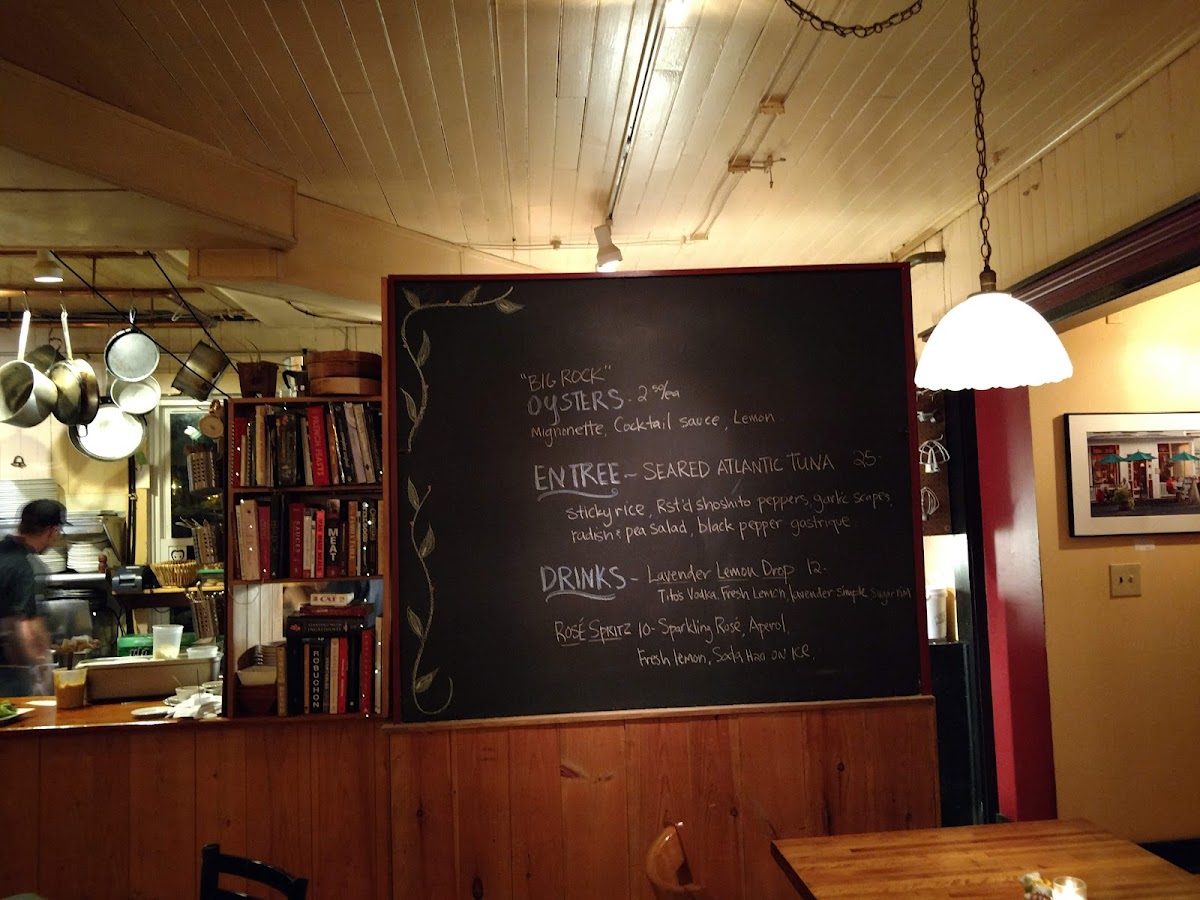 "BIG ROCK"
OYSTERS - 2 50/ea
Mignonette, Cocktail sauce, Lemon
ENTREE - SEARED ATLANTIC TUNA 25-
sticky rice, Rst'd shoshito peppers, garlic scapes,
radish & pea salad, black pepper gastrique.
DRINKS - Lavender Lemon Drop 12-
Tito's Vodka, Fresh Lemon, lavender simple, sugar rim
ROSÉ SPRITZ 10- Sparkling Rosé, Aperol,
Fresh lemon, Soda H2O ON ICE.
MEAT
ROBUCHON